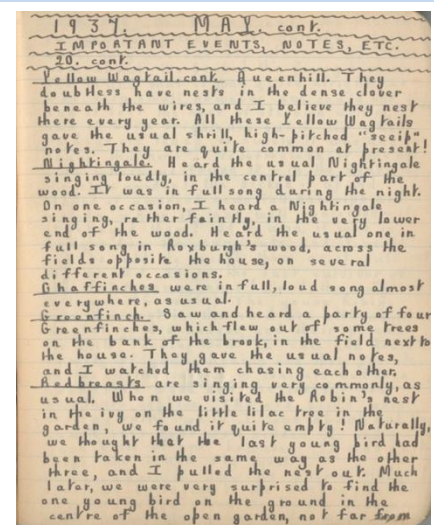 1937. MAY. cont.
IMPORTANT EVENTS, NOTES, ETC.
20. cont.
Yellow Wagtail. cont. Queenhill. They
doubtless have nests in the dense clover
beneath the wires, and I believe they nest
there every year. All these Yellow Wagtails
gave the usual shrill, high-pitched "seeip"
notes. They are quite common at present!
Nightingale. Heard the usual Nightingale
singing loudly, in the central part of the
wood. It was in full song during the night.
On one occasion, I heard a Nightingale
singing, rather faintly, in the very lower
end of the wood. Heard the usual one in
full song in Roxburgh's wood, across the
fields opposite the house, on several
different occasions.
Chaffinches were in full, loud song almost
everywhere, as usual.
Greenfinch. Saw and heard a party of four
Greenfinches, which flew out of some trees
on the bank of the brook, in the field next to
the house. They gave the usual notes,
and I watched them chasing each other.
Redbreasts are singing very commonly, as
usual. When we visited the Robin's nest
in the ivy on the little lilac tree in the
garden, we found it quite empty! Naturally,
we thought that the last young bird had
been taken in the same way as the other
three, and I pulled the nest out. Much
later, we were very surprised to find the
one young bird on the ground in the
centre of the open garden, not far from